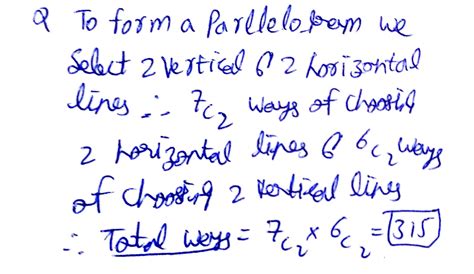 Q To form a Parllelogram we
Select 2 vertical & 2 horizontal
lines ∴ 7C₂ ways of choosing
2 horizontal lines & 6C₂ ways
of choosing 2 vertical lines
∴ Total ways = 7C₂ × 6C₂ = 315